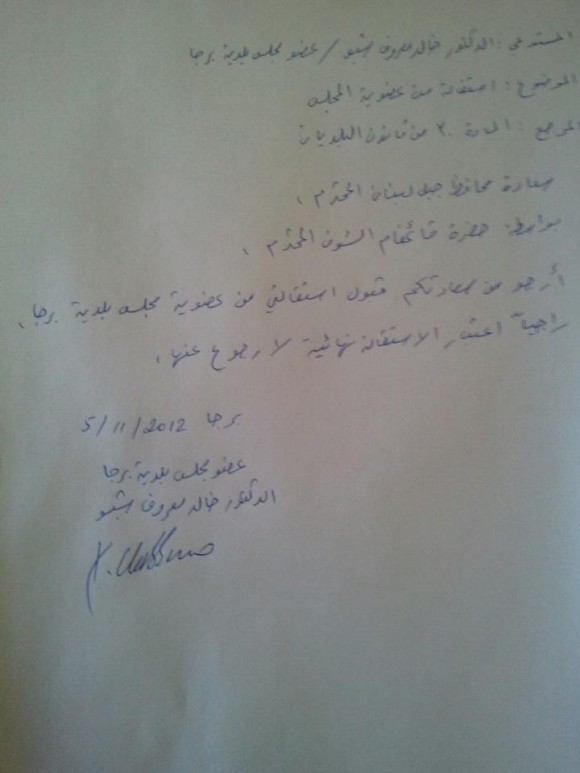 المستدعي : الدكتور خالد معروف شبو / عضو مجلس بلدية برجا
الموضوع : استقالة من عضوية المجلس
المرجع : المادة ٣٠ من قانون البلديات
سعادة محافظ جبل لبنان المحترم ،
بواسطة حضرة قائمقام الشوف المحترم ،
أرجو من سعادتكم قبول استقالتي من عضوية مجلس بلدية برجا ،
راجياً اعتبار الاستقالة نهائية لا رجوع عنها .
برجا 5/11/2012
عضو مجلس بلدية برجا
الدكتور خالد معروف شبو